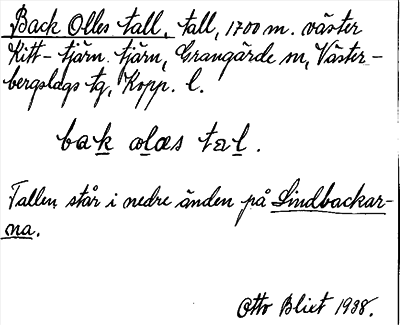 Back Olles tall, tall, 1700 m. väster
Kitt-tjärn tjärn, Grangärde sn, Väster-
bergslags tg, Kopp. l.
bak olas tal.
Tallen står i nedre änden på Lindbackar-
na.
Otto Blixt 1938.